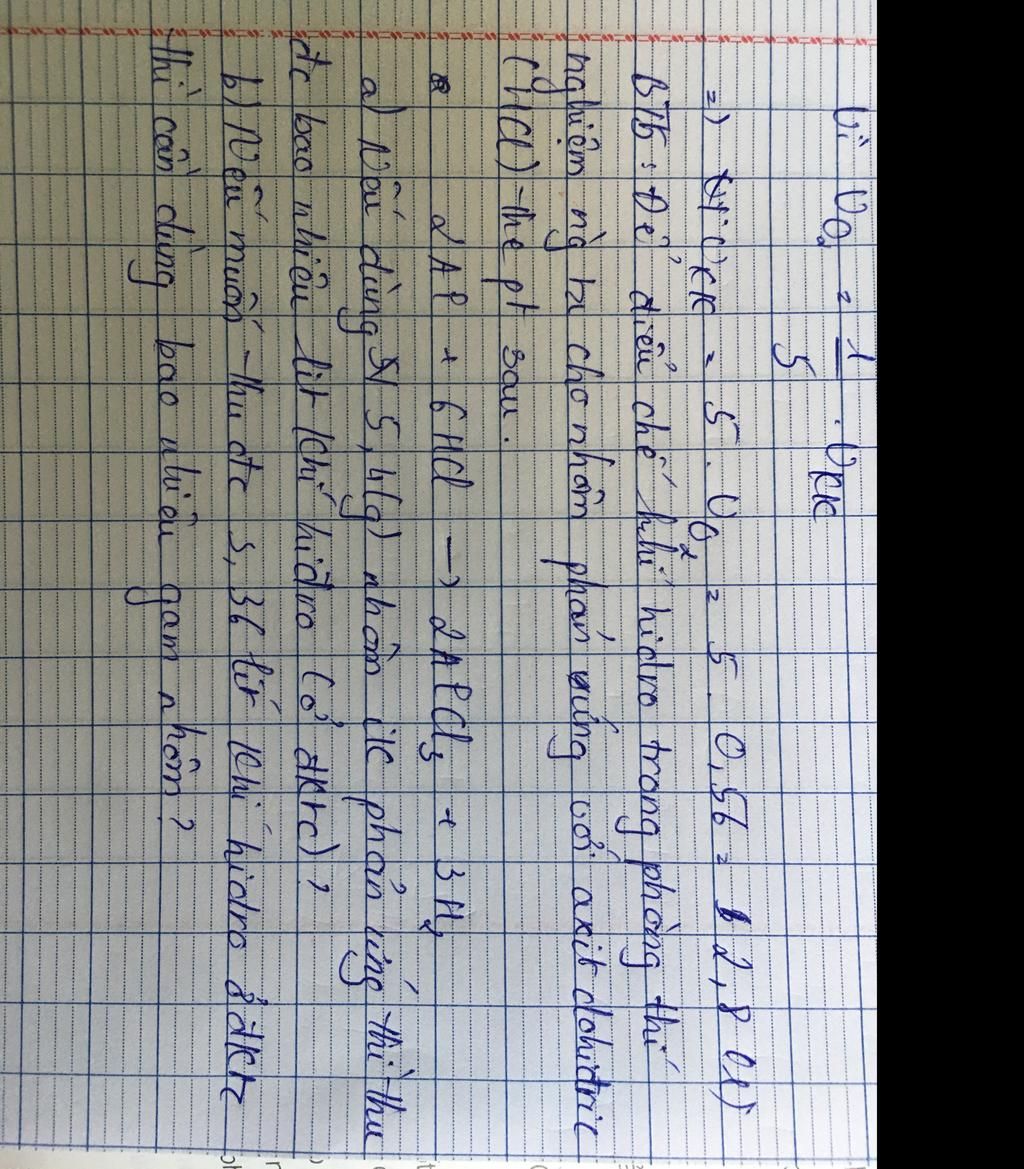 Vì V O₂ = 1/5 . V KK
=) V KK = 5 . V O₂ = 5 . 0,56 = 2,8 (l)
BT5: Để điều chế khí hidro trong phòng thí
nghiệm ng ta cho nhôm phản ứng với axit clohidric
(HCl) the pt sau.
2Al + 6HCl → 2AlCl₃ + 3H₂
a) Nếu dùng 5,4(g) nhôm phản ứng thì thu
đc bao nhiêu lít khí hidro (ở đktc)?
b) Nếu muốn thu đc 3,36 lít khí hidro ở đktc
thì cần dùng bao nhiêu gam nhôm?